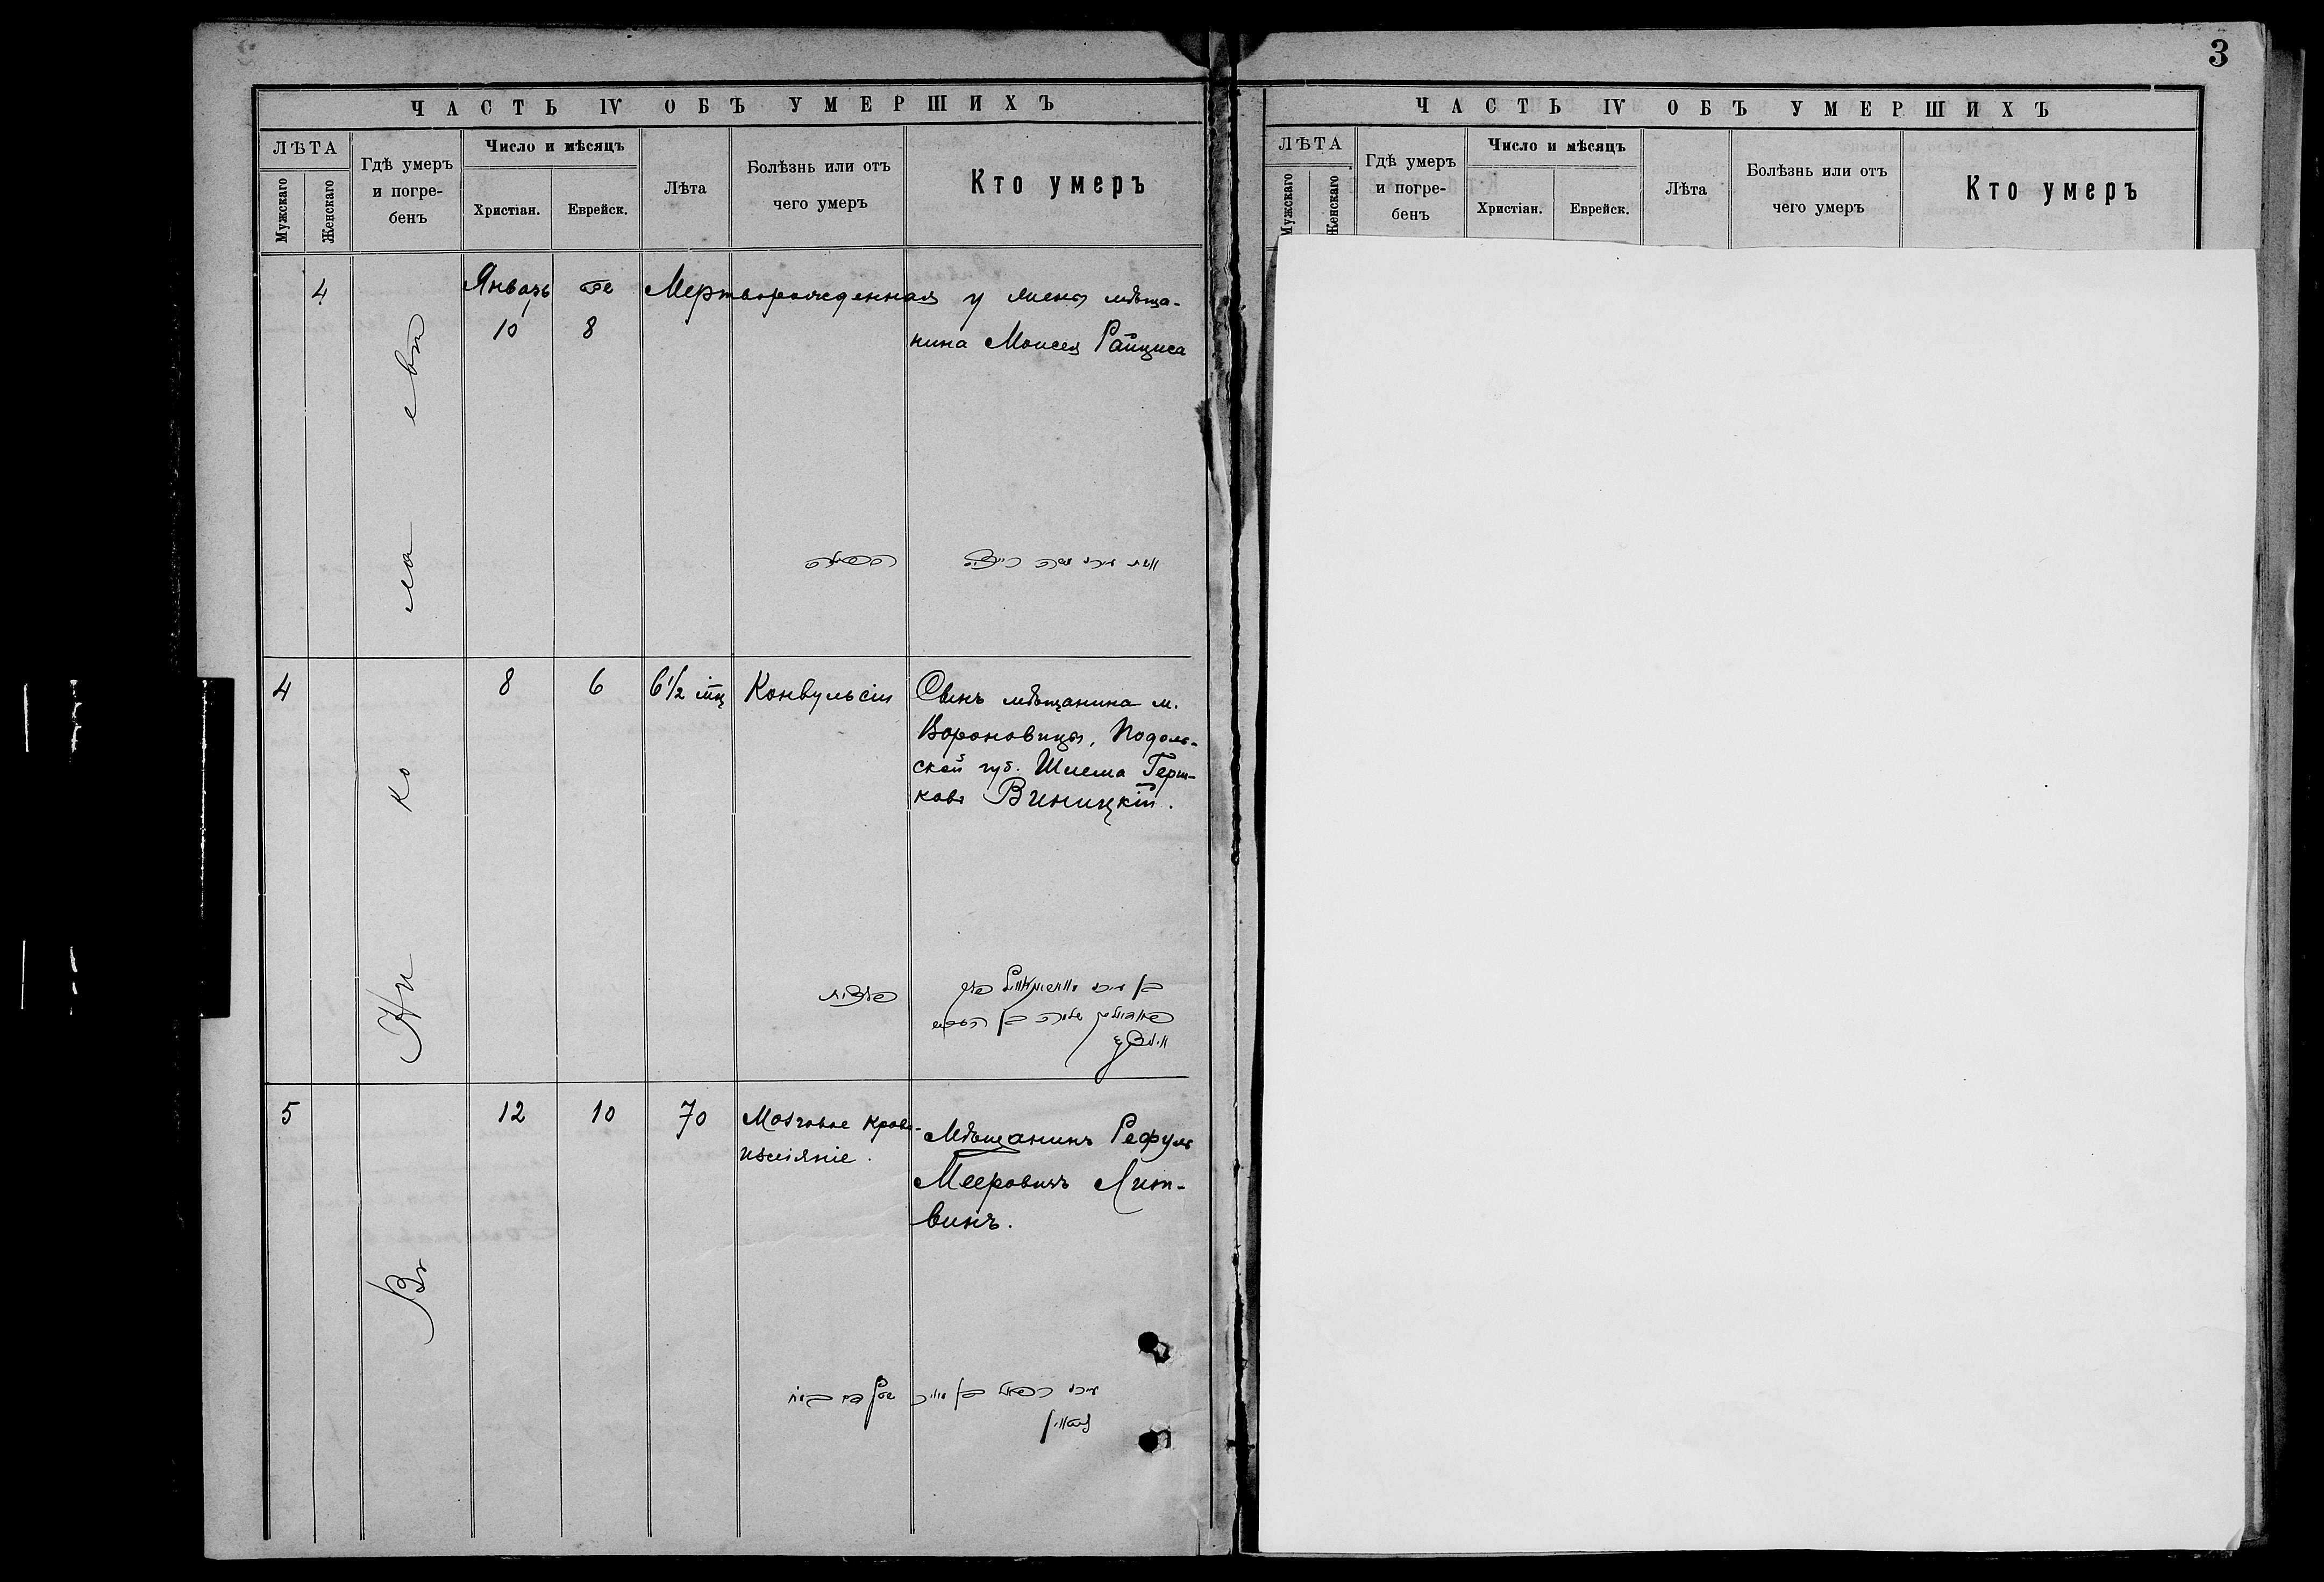 3
ЧАСТЬ IV ОБЪ УМЕРШИХЪ
ЛѢТА
Мужскаго
Женскаго
Гдѣ умеръ
и погре-
бенъ
Число и мѣсяцъ
Христіан.
Еврейск.
Лѣта
Болѣзнь или отъ
чего умеръ
Кто умеръ
4
Январь
10
8
Мертворожденная у жены мѣща-
нина Моисея Райциса
4
8
6
6 1/2 мц
Конвульсіи
Сынъ мѣщанина м.
Вороновицы, Подоль-
ской губ. Шлема Герш-
ковъ Виницкій.
5
12
10
70
Мозговое крово-
изліяніе.
Мѣщанинъ Рефуль
Мееровичъ Лит-
винъ.
Въ Николаевѣ
ЧАСТЬ IV ОБЪ УМЕРШИХЪ
ЛѢТА
Мужскаго
Женскаго
Гдѣ умеръ
и погре-
бенъ
Число и мѣсяцъ
Христіан.
Еврейск.
Лѣта
Болѣзнь или отъ
чего умеръ
Кто умеръ